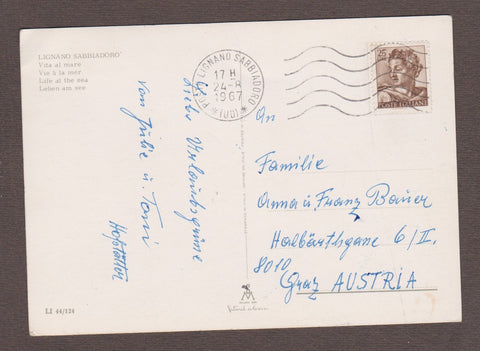 LIGNANO SABBIADORO
Vita al mare
Vie à la mer
Life at the sea
Leben am see
POSTE LIGNANO SABBIADORO
17 H
24-8
1967
*(UD)*
25
POSTE ITALIANE
An
Familie
Anna u. Franz Bauer
Halbärthgasse 6/II.
8010
Graz AUSTRIA
Liebe Urlaubsgrüße
von Julie u. Toni
Hofstätter
LI 44/124